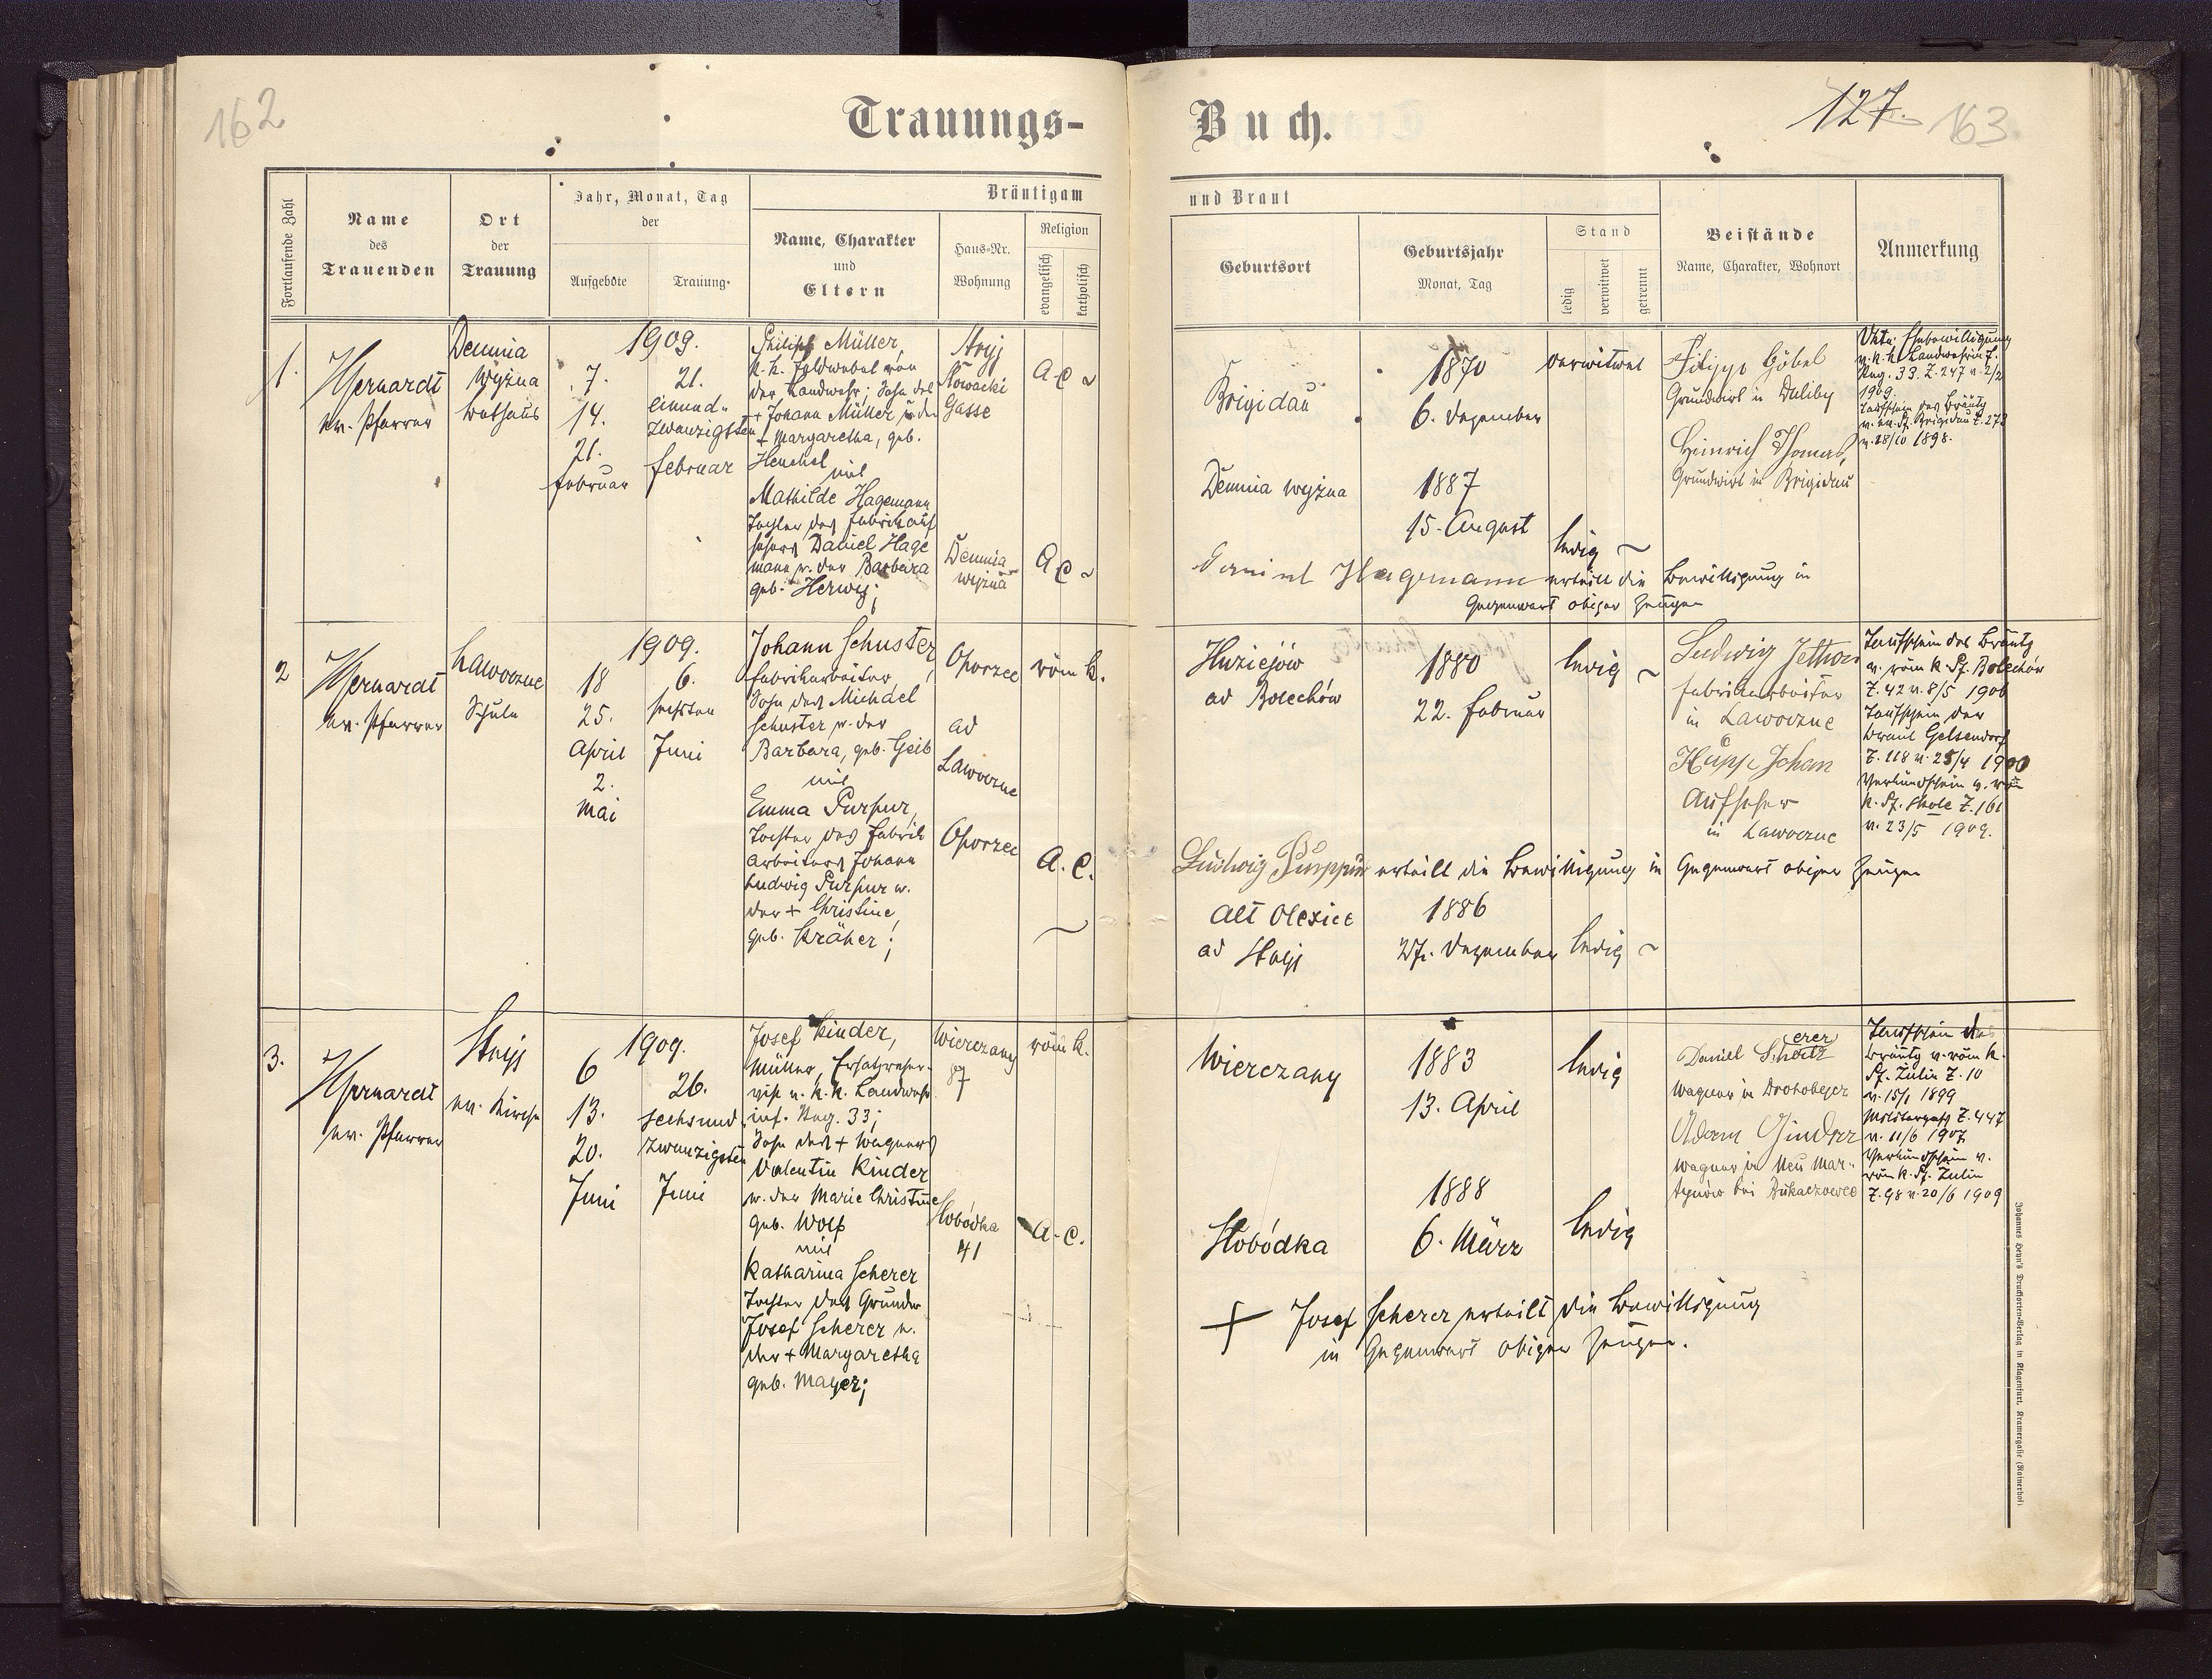 162
Trauungs-
Buch.
127.
163.
Fortlaufende Zahl
Name
des
Trauenden
Ort
der
Trauung
Jahr, Monat, Tag
der
Aufgebote
Trauung
Bräutigam
Name, Charakter
und
Eltern
Haus-Nr.
Wohnung
Religion
evangelisch
katholisch
und Braut
Geburtsort
Geburtsjahr
Monat, Tag
Stand
ledig
verwitwet
getrennt
Beistände
Name, Charakter, Wohnort
Anmerkung
1.
ev. Pfarrer
Demnia
wyżna
Bethaus
1909.
7.
14.
21.
Februar
21.
einund-
zwanzigsten
Februar
Philipp Müller,
k. k. Feldwebel von
der Landwehr; Sohn des
+ Johann Müller u. der
+ Margaretha, geb.
Henchel
mit
Mathilde Hagemann
Tochter des Fabriksauf
sehers Daniel Hage
mann u. der Barbara
geb. Herwig;
Stryj
Słowacki
Gasse
Demnia
wyżna
A. C.
A. C.
Brigidau
1870
6. Dezember
verwitwet
Demnia wyżna
1887
15. August
ledig
Filipp Göbel
Grundwirt in Duliby
Heinrich Thomas,
Grundwirt in Brigidau
Ehebewilligung
v. k. k. Landwehrinf.
Reg. 33. Z. 247 v. 2/2
1909.
Taufschein des Bräutg
v. ev. Pf. Brigidau Z. 273
v. 28/10 1898.
Daniel Hagemann erteilt die Bewilligung in
Gegenwart obiger Zeugen
2
ev. Pfarrer
Lawoczne
Schule
1909.
18
25.
April
2.
Mai
6.
sechsten
Juni
Johann Schuster,
Fabrikarbeiter,
Sohn des Michael
Schuster u. der
Barbara, geb. Geib
mit
Emma Purpur,
Tochter des Fabrik
arbeiters Johann
Ludwig Purpur u.
der + Christine,
geb. Kräher;
Oporzec
ad
Lawoczne
Oporzec
röm k.
A. C.
Huziejów
ad Bolechów
1880
22. Februar
ledig
Ludwig
Fabrikarbeiter
in Lawoczne
Johan
Aufseher
in Lawoczne
Taufschein des Bräutg
v. röm k. Pf. Bolechów
Z. 42 v. 8/5 1906
Taufschein der
Braut Gelsendorf
Z. 118 v. 25/4 1900
Verkündschein v. röm
k. Pf. Skole Z. 161
v. 23/5 1909.
Ludwig Purppur erteilt die Bewilligung in Gegenwart obiger Zeugen
Alt Olexice
ad Stryj
1886
27. Dezember
ledig
3.
ev. Pfarrer
Stryj
ev. Kirche
1909.
6
13.
20.
Juni
26.
sechsund
zwanzigsten
Juni
Josef Kinder,
Müller, Ersatzreser-
vist u. k. k. Landwehr
inf. Reg. 33;
Sohn des + Wagners
Valentin Kinder
u. der Marie Christine
geb. Wolf
mit
Katharina Scherer
Tochter des Grundw
Josef Scherer u.
der + Margaretha
geb. Mayer;
Wierczany
87
Słobódka
41
röm k.
A. C.
Wierczany
1883
13. April
ledig
Słobódka
1888
6. März
ledig
erer
Daniel
Wagner in Drohobycz
Adam Ginder
Wagner in Neu Mar-
tynów bei Bukaczowce
Taufschein des
Bräutg v. röm k.
Pf. Zulin Z. 10
v. 15/1 1899
Militärpass Z. 447
v. 11/6 1907
Verkündschein v.
röm k. Pf. Zulin
Z. 98 v. 20/6 1909
+ Josef Scherer erteilt die Bewilligung
in Gegenwart obiger Zeugen.
Johannes Heyn's Drucksorten-Verlag in Klagenfurt, Kramergasse (Rainerhof)